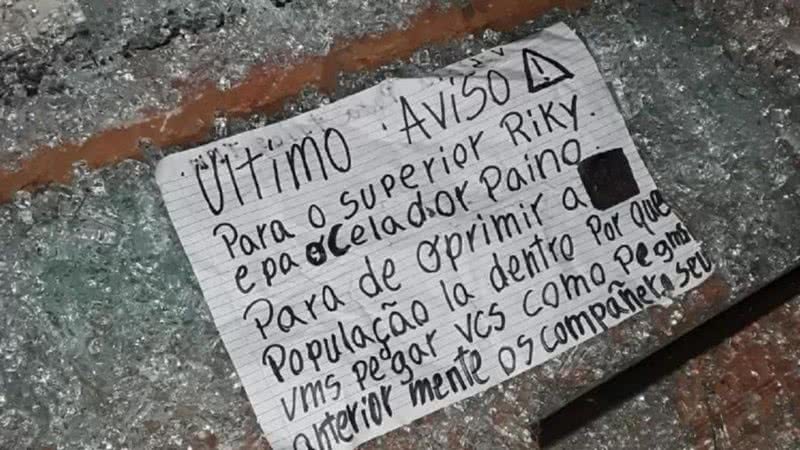 Ultimo Aviso
Para o superior Riky.
e pa o Celador Paino.
Para de oprimir a
População la dentro Por que
vms pegar vcs como pegms
anterior mente os compañero seu